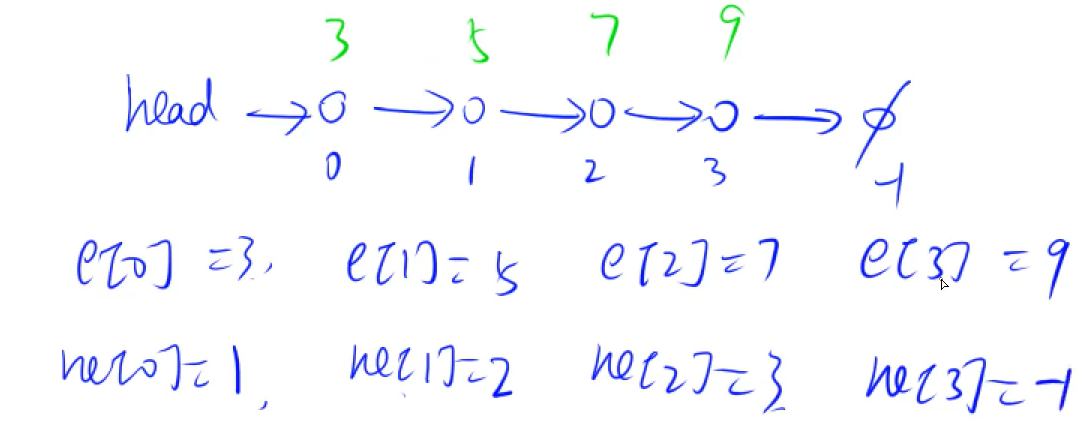 3 5 7 9
head → o → o → o → o → ϕ
0 1 2 3 -1
e[0] = 3, e[1] = 5 e[2] = 7 e[3] = 9
ne[0] = 1, ne[1] = 2 ne[2] = 3 ne[3] = -1